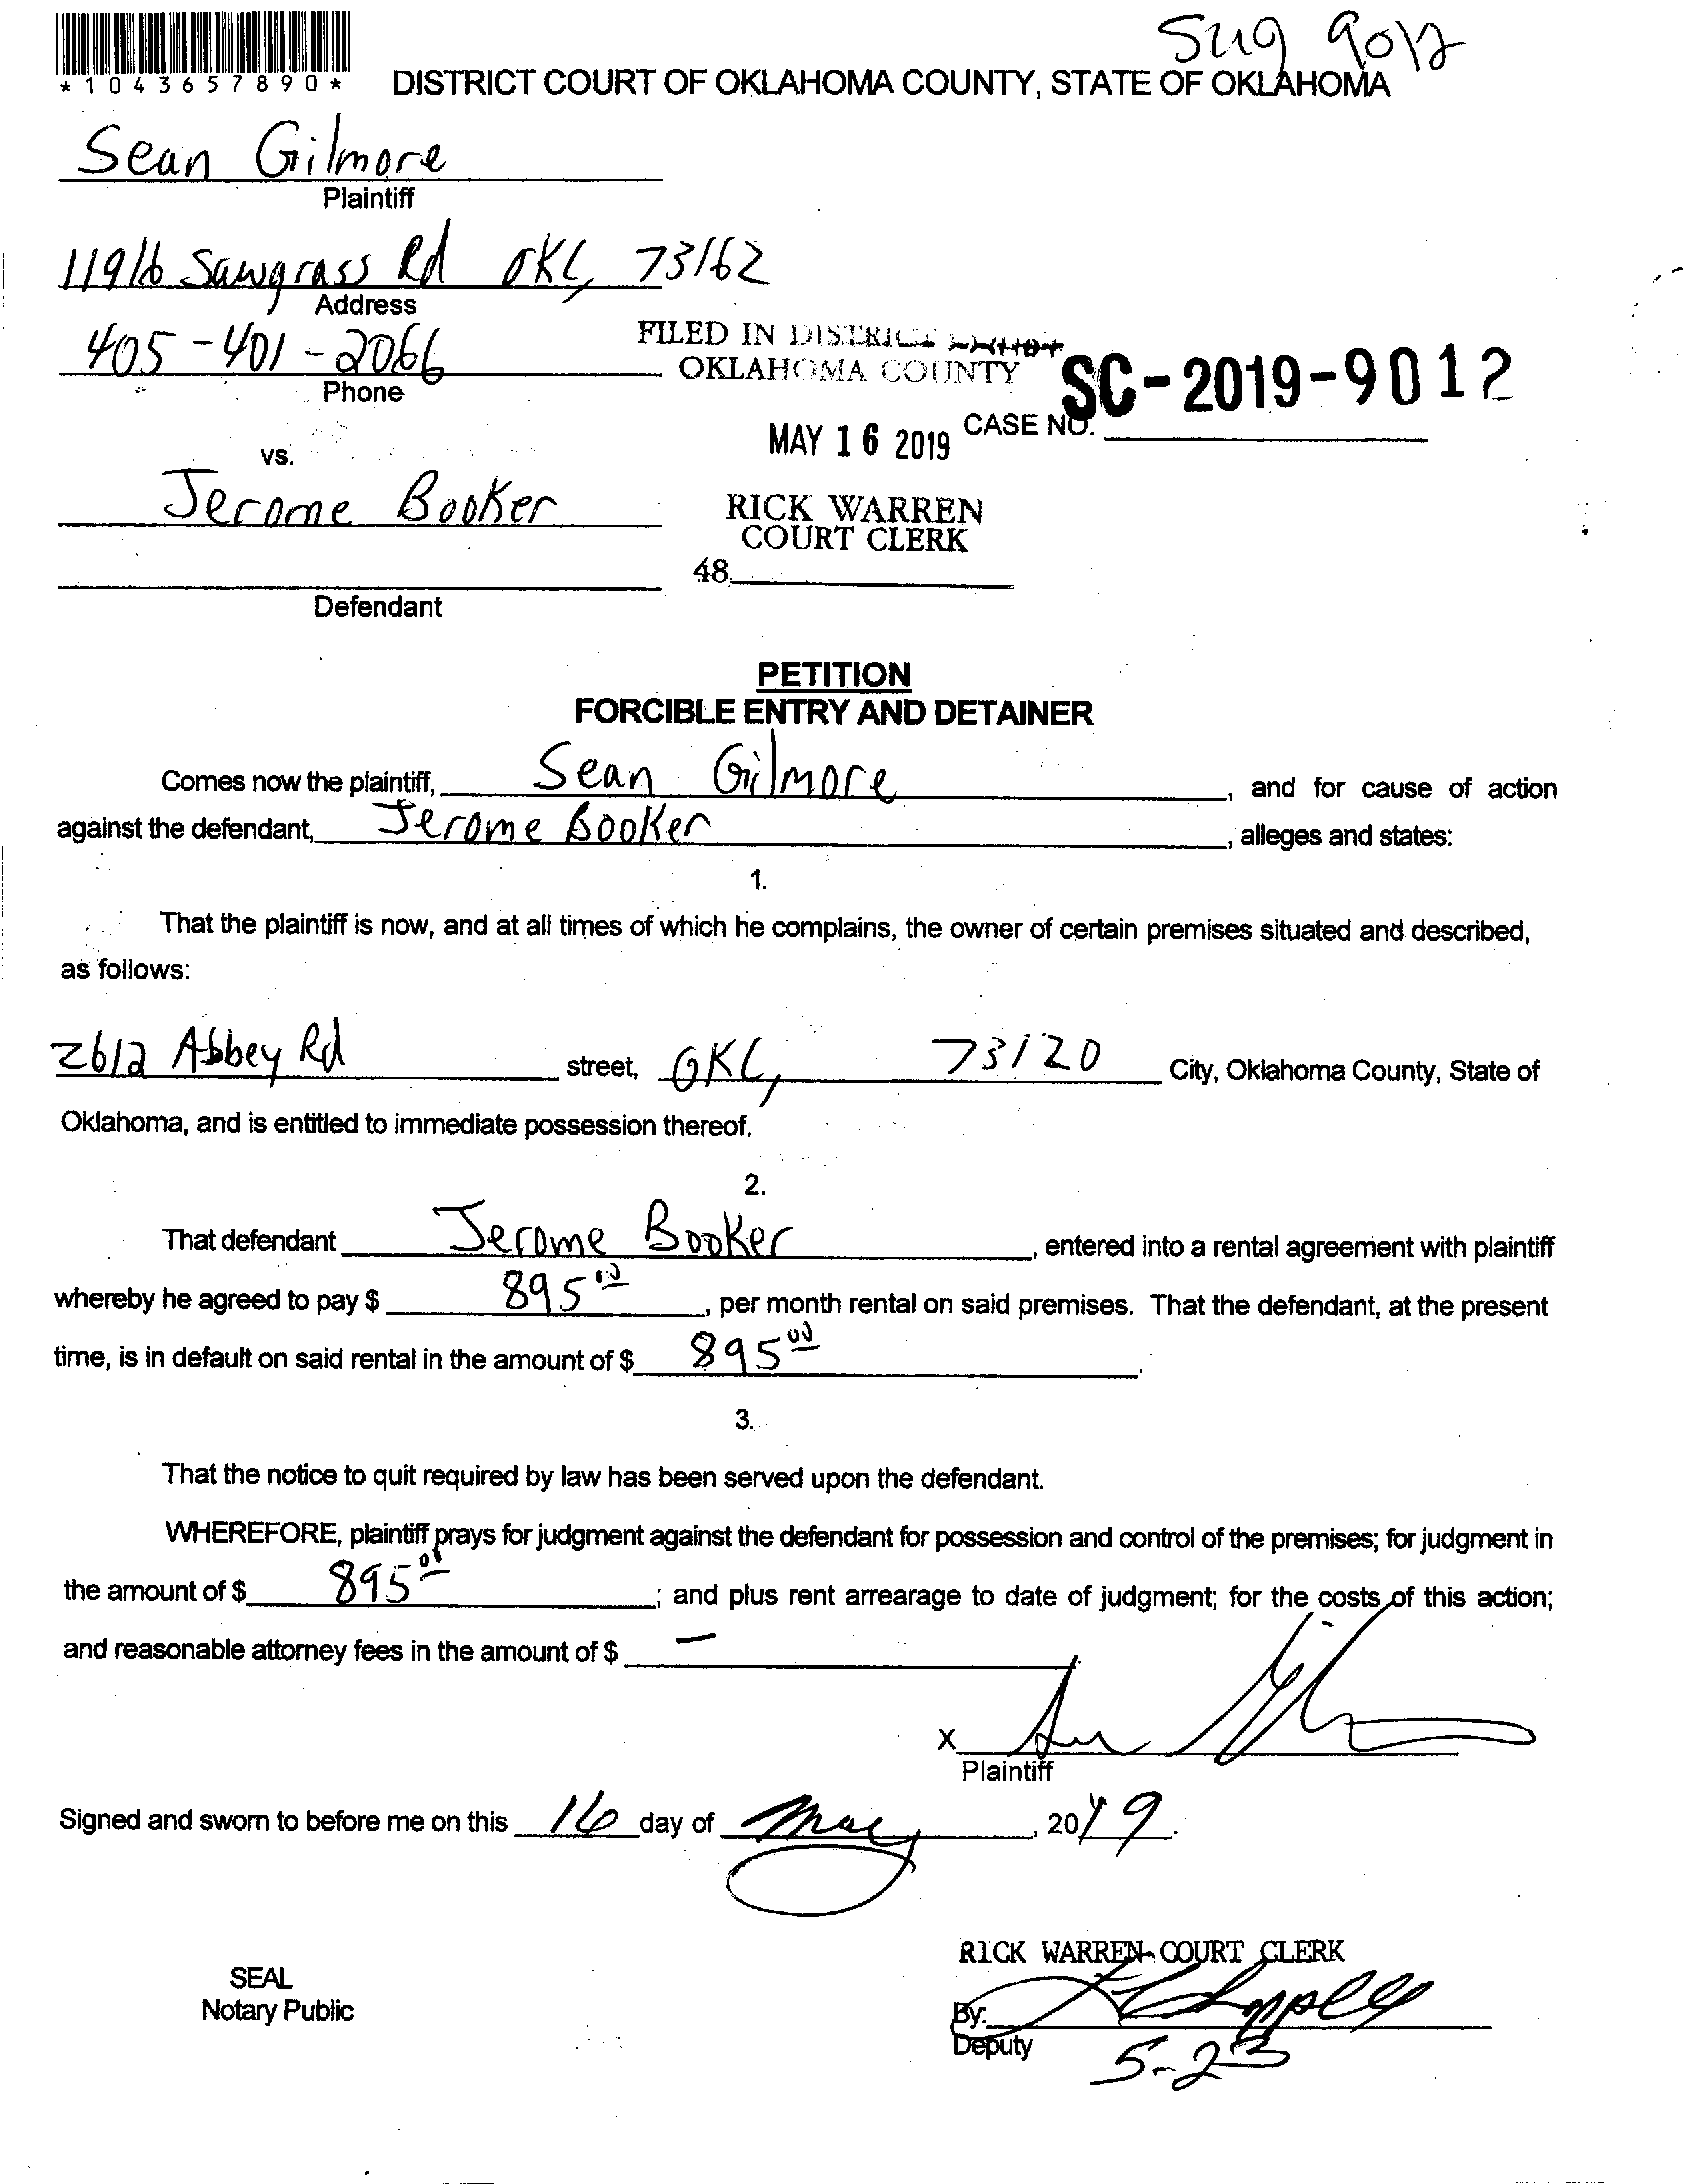 Sug 9012
*1043657890*
DISTRICT COURT OF OKLAHOMA COUNTY, STATE OF OKLAHOMA
Sean Gilmore
Plaintiff
11916 Sawgrass Rd OKC, 73162
Address
405-401-2066
Phone
FILED IN DISTRICT
OKLAHOMA COUNTY
SC-2019-9012
MAY 16 2019
CASE NO.
vs.
Jerome Booker
RICK WARREN
COURT CLERK
48
Defendant
PETITION
FORCIBLE ENTRY AND DETAINER
Comes now the plaintiff, Sean Gilmore, and for cause of action
against the defendant, Jerome Booker, alleges and states:
1.
That the plaintiff is now, and at all times of which he complains, the owner of certain premises situated and described,
as follows:
2612 Abbey Rd street, OKC, 73120 City, Oklahoma County, State of
Oklahoma, and is entitled to immediate possession thereof.
2.
That defendant Jerome Booker, entered into a rental agreement with plaintiff
whereby he agreed to pay $ 895 00, per month rental on said premises. That the defendant, at the present
time, is in default on said rental in the amount of $ 895 00.
3.
That the notice to quit required by law has been served upon the defendant.
WHEREFORE, plaintiff prays for judgment against the defendant for possession and control of the premises; for judgment in
the amount of $ 895 00; and plus rent arrearage to date of judgment; for the costs of this action;
and reasonable attorney fees in the amount of $ –
X
Plaintiff
Signed and sworn to before me on this 16 day of May, 2019.
RICK WARREN COURT CLERK
SEAL
Notary Public
By:
Deputy
5-23